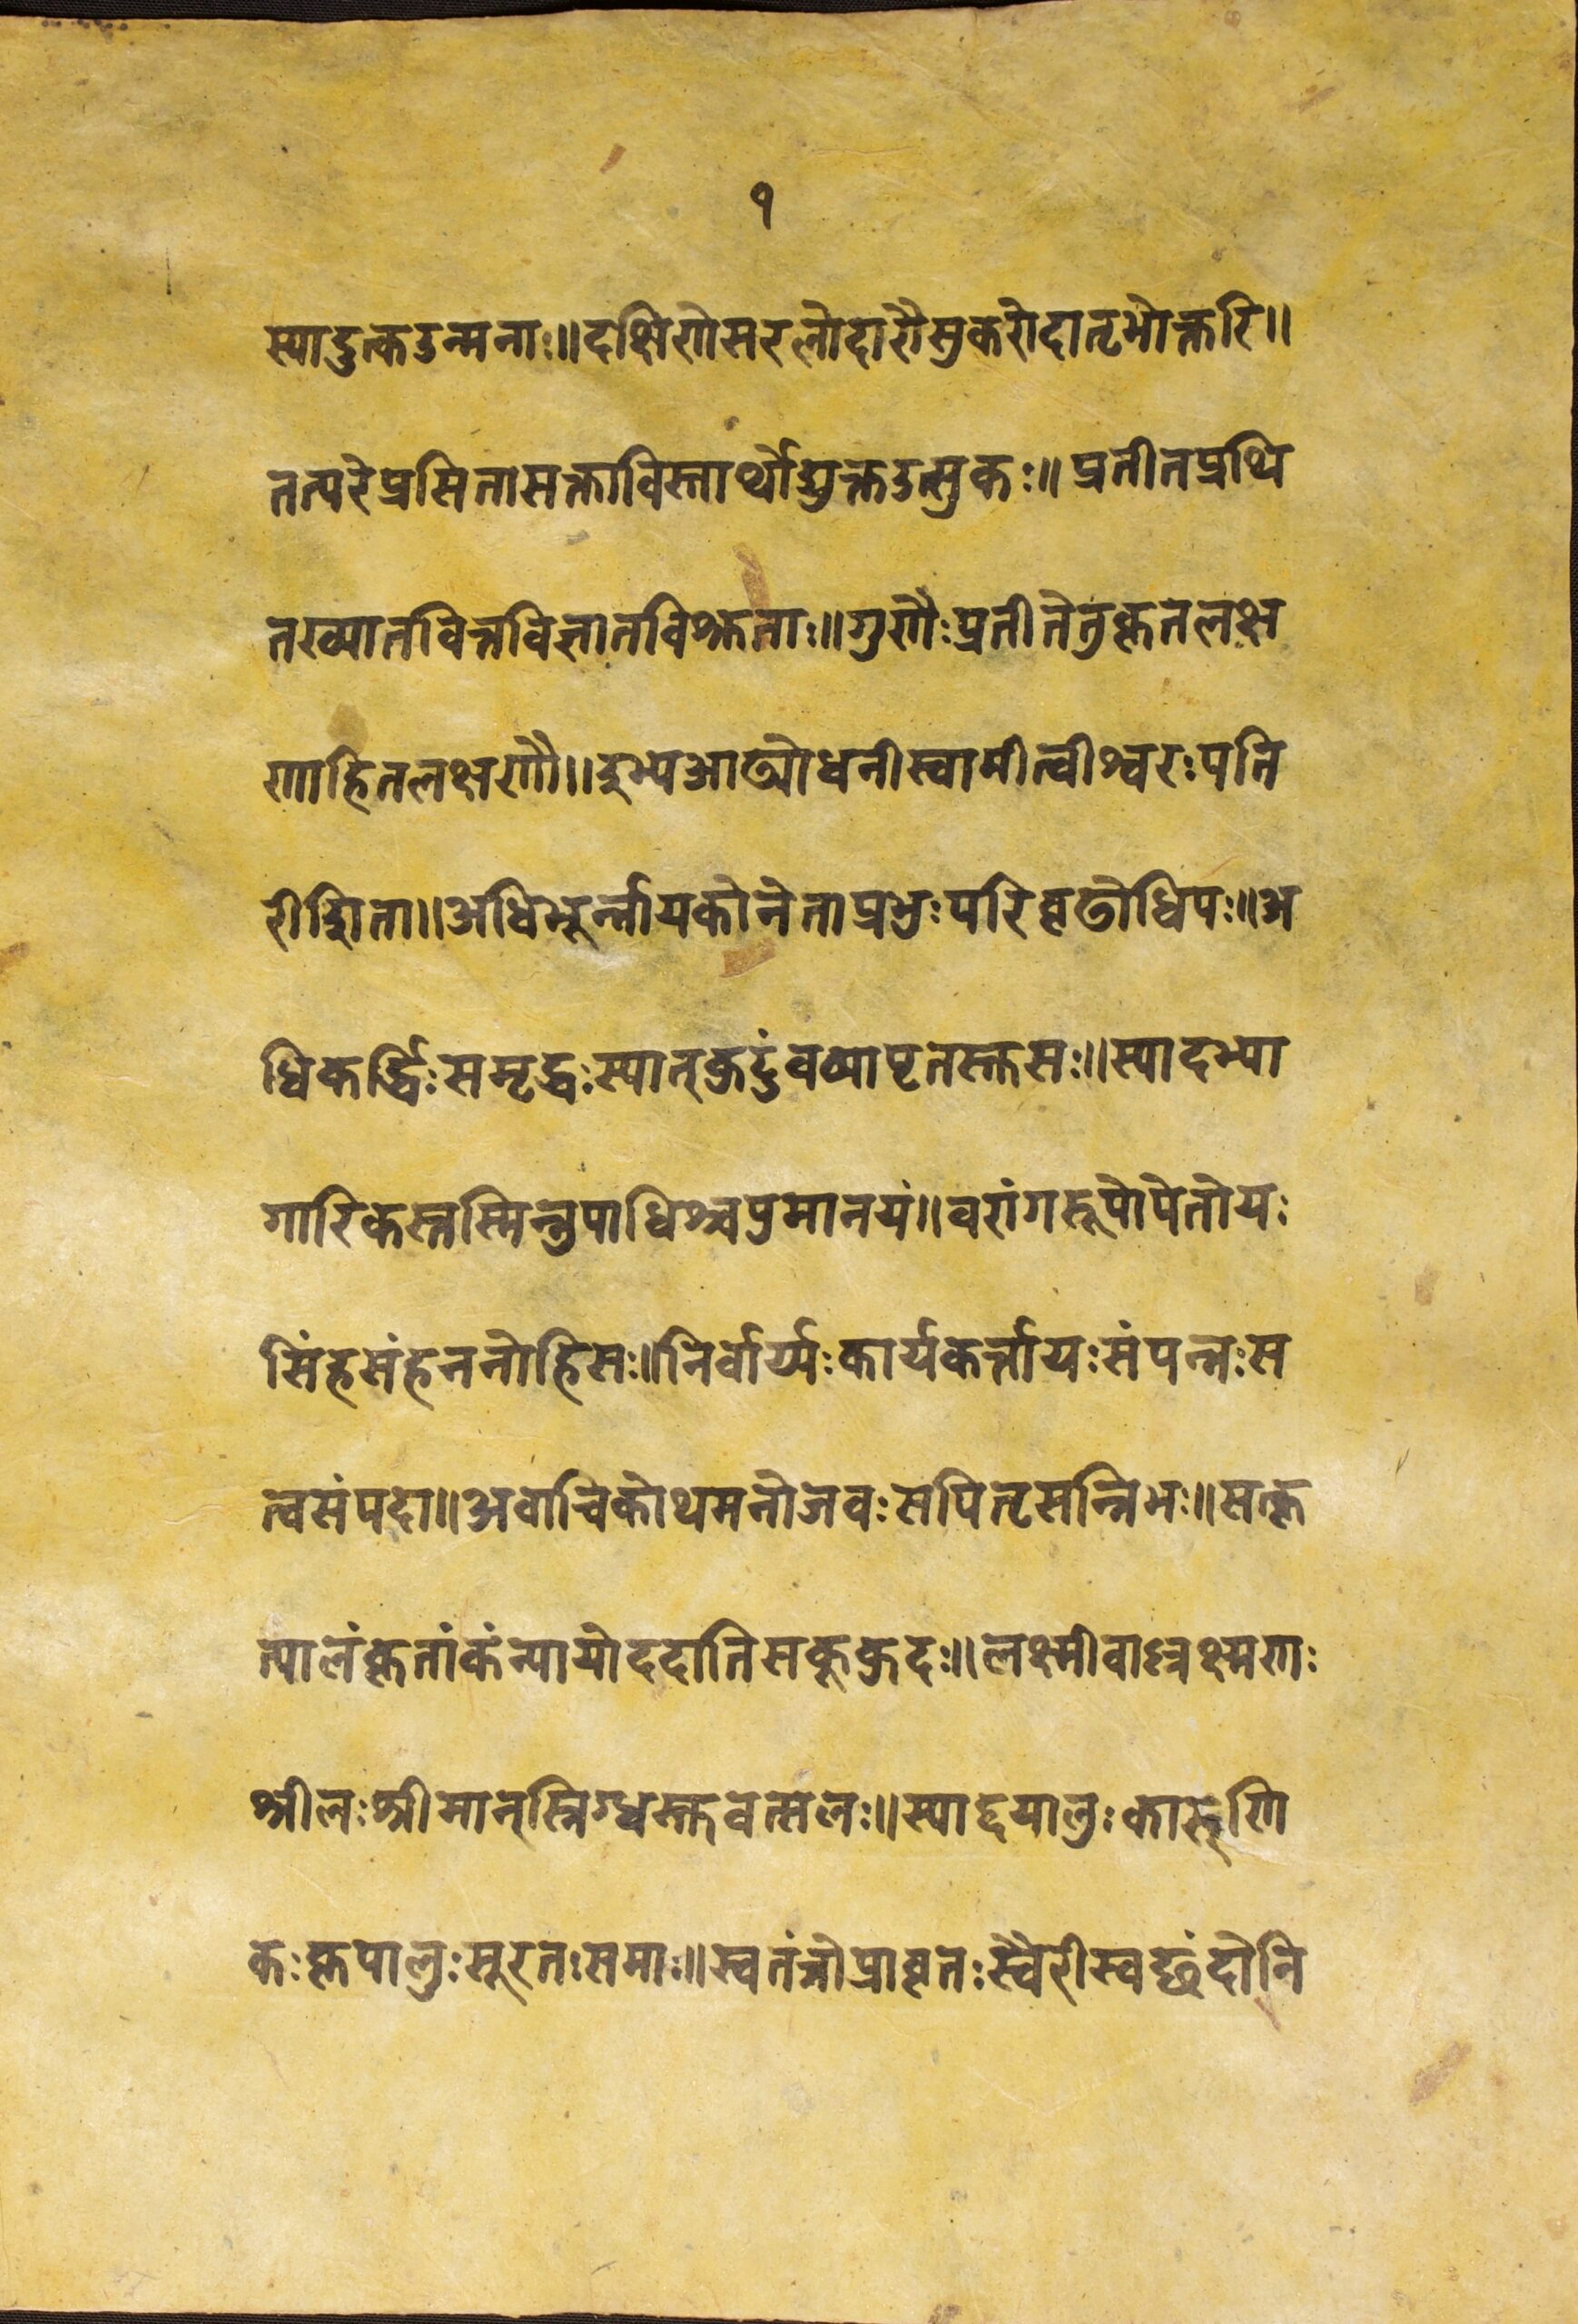 १
स्यादुत्कउन्मनाः॥दक्षिणेसरलोदारौसुकरोदातृभोक्तरि॥
तत्परेप्रसितासक्ताविस्तार्थोद्युक्तउत्सुकः॥प्रतीतप्रथि
तख्यातवित्तविज्ञातविश्रुताः॥गुणैःप्रतीतेतुकृतलक्ष
णाहितलक्षणौ॥इभ्यआढ्योधनीस्वामीत्वीश्वरःपति
रीशिता॥अधिभूर्न्नायकोनेताप्रभुःपरिवृढोधिपः॥अ
धिकर्द्धिःसमृद्धःस्यात्कुटुंवव्यापृतस्तुसः॥स्यादभ्या
गारिकस्तस्मिन्नुपाधिश्चपुमानयं॥वरांगरूपोपेतोयः
सिंहसंहननोहिसः॥निर्वार्य्यःकार्यकर्त्तायःसंपन्नःस
त्वसंपदा॥अवाचिकोथमनोजवःसपितृसन्निभः॥सत्कृ
त्यालंकृतांकंन्यायोददातिसकूकुदः॥लक्ष्मीवाँल्लक्ष्मणः
श्रीलःश्रीमान्स्निग्धस्तुवत्सलः॥स्याद्दयालुःकारुणि
कःकृपालुःसूरतःसमाः॥स्वतंत्रोप्रावृतःस्वैरीस्वछंदोनि